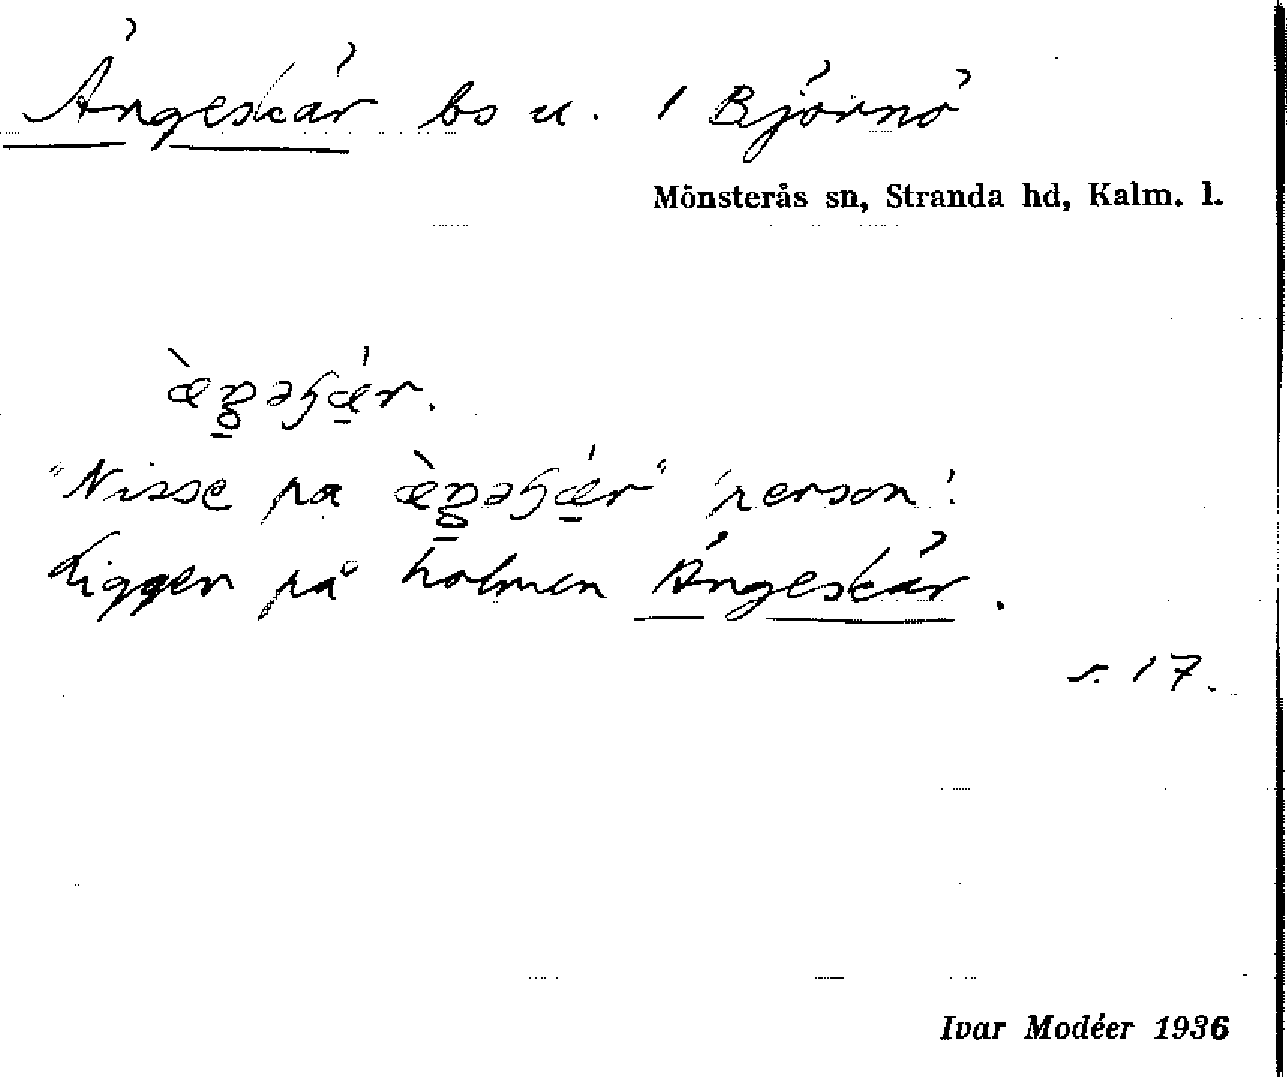 Ängeskär bs u. 1 Björnö
Mönsterås sn, Stranda hd, Kalm. l.
"Nisse på person!
Ligger på holmen Ängeskär.
s. 17.
Ivar Modéer 1936